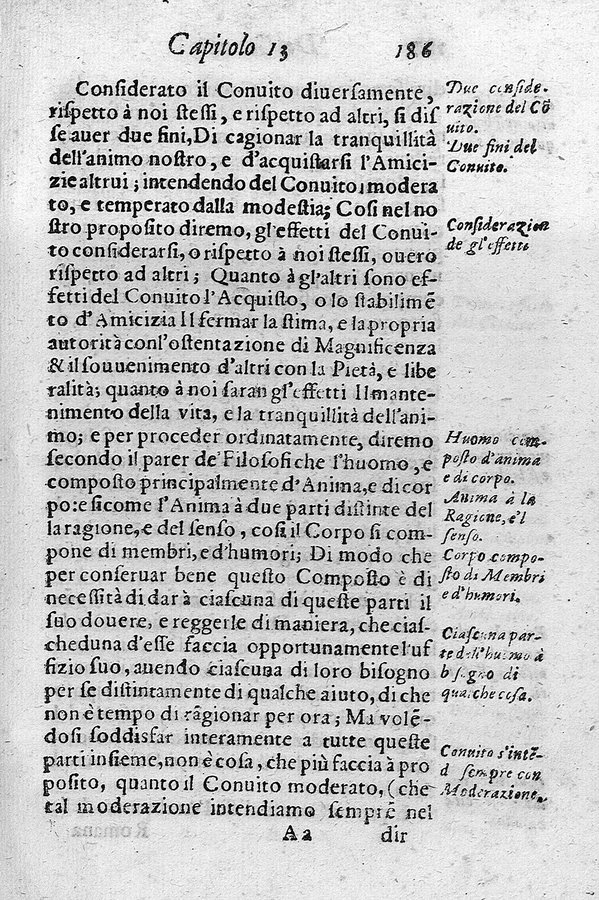 Capitolo 13 186
Conſiderato il Conuito diuerſamente,
riſpetto à noi ſteſſi, e riſpetto ad altri, ſi diſ
ſe auer due fini, Di cagionar la tranquillità
dell'animo noſtro, e d'acquiſtarſi l'Amici-
zie altrui; intendendo del Conuito moderа
to, e temperato dalla modeſtia; Coſi nel no
ſtro propoſito diremo, gl'effetti del Conui-
to conſiderarſi, o riſpetto à noi ſteſſi, ouero
riſpetto ad altri; Quanto à gl'altri ſono ef-
fetti del Conuito l'Acquiſto, o lo ſtabilimē
to d'Amicizia Il fermar la ſtima, e la propria
autorità conl'oſtentazione di Magnificenza
& il ſouuenimento d'altri con la Pietà, e libe
ralità; quanto à noi ſaran gl'effetti Il mante-
nimento della vita, e la tranquillità dell'ani-
mo; e per proceder ordinatamente, diremo
ſecondo il parer de' Filoſofi che l'huomo, e
compoſto principalmente d'Anima, e di cor
po: e ſicome l'Anima à due parti diſtinte del
la ragione, e del ſenſo, coſi il Corpo ſi com-
pone di membri, e d'humori; Di modo che
per conſeruar bene queſto Compoſto è di
neceſſità di dar à ciaſcuna di queſte parti il
ſuo douere, e reggerle di maniera, che ciaſ-
cheduna d'eſſe faccia opportunamente l'uf
fizio ſuo, auendo ciaſcuna di loro biſogno
per ſe diſtintamente di qualche aiuto, di che
non è tempo di ragionar per ora; Ma volē-
doſi ſoddisfar interamente a tutte queſte
parti inſieme, non è coſa, che più faccia à pro
poſito, quanto il Conuito moderato, (che
tal moderazione intendiamo ſemprē nel
Aa dir
Due conſide-
razione del Cō
uito.
Due fini del
Conuito.
Conſiderazion
de gl'effetti
Huomo com-
poſto d'anima
e di corpo.
Anima à la
Ragione, e'l
ſenſo.
Corpo compo-
ſto di Membri
e d'humori.
Ciaſcuna par-
te dell'huomo à
biſogno di
qualche coſa.
Conuito s'intē-
d ſempre con
Moderazione.